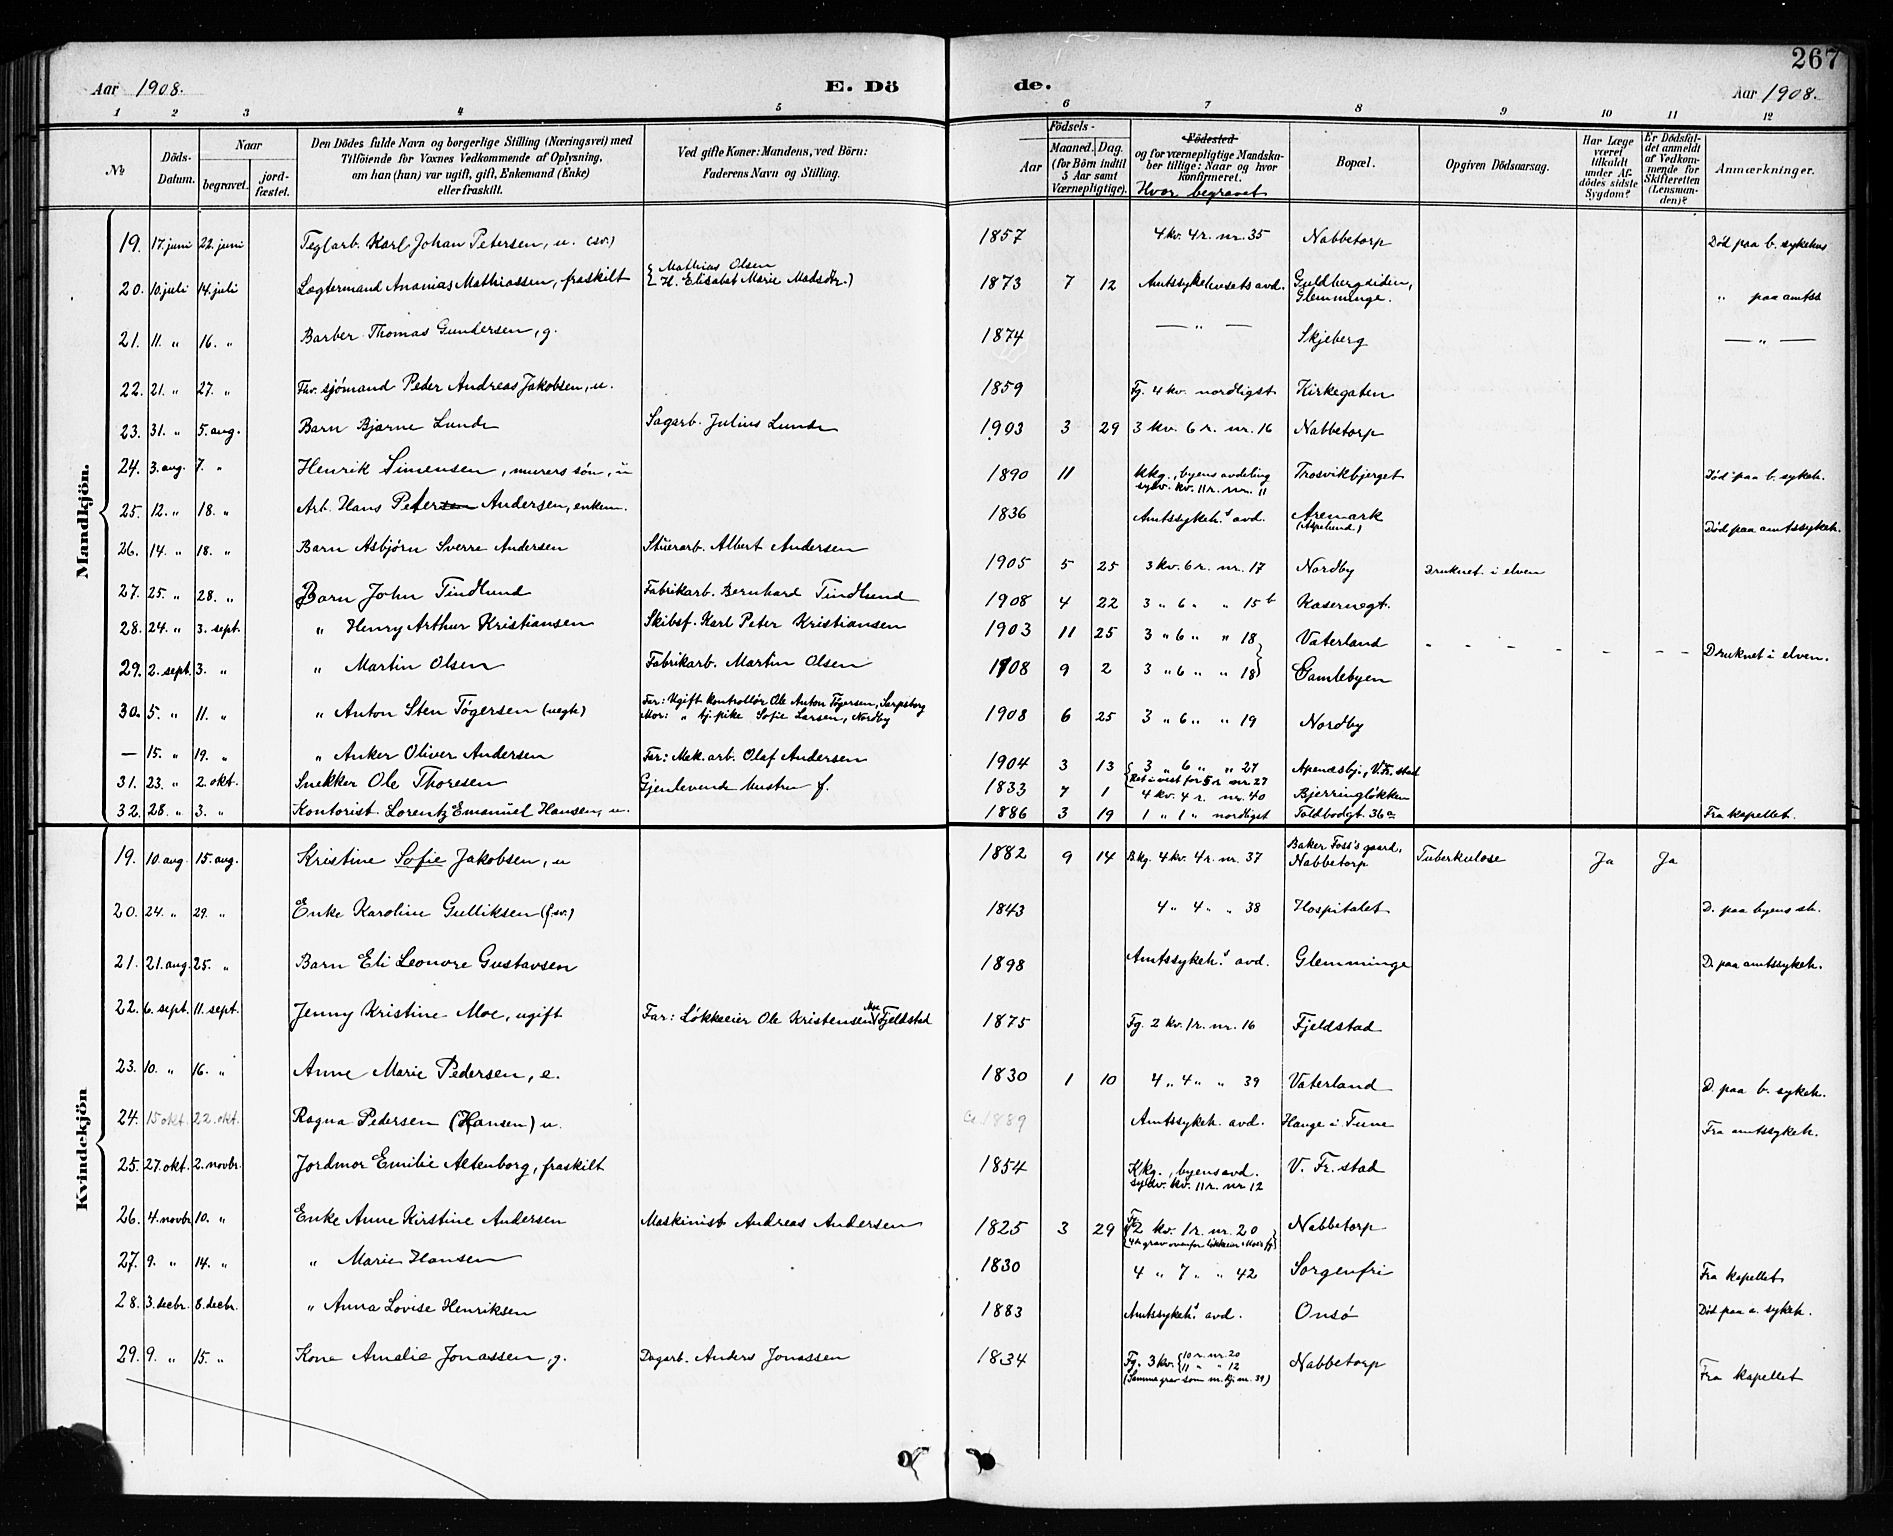 267
Aar 1908.
E. Dö
de.
Aar 1908.
1 2 3 4 5 6 7 8 9 10 11 12
№
Döds-Datum.
Naar
begravet.
jord-fæstet.
Den Dödes fulde Navn og borgerlige Stilling (Næringsvei) med
Tilföiende for Voxnes Vedkommende af Oplysning,
om han (hun) var ugift, gift, Enkemand (Enke)
eller fraskilt.
Ved gifte Koner: Mandens, ved Börn:
Faderens Navn og Stilling.
Födsels-
Aar
Maaned. Dag.
(for Börn indtil
5 Aar samt
Værnepligtige).
Födested
og for værnepligtige Mandska-
ber tillige: Naar og hvor
konfirmeret.
Hvor begravet
Bopæl.
Opgiven Dödsaarsag.
Har Læge
været
tilkaldt
under Af-
dödes sidste
Sygdom?
Er Dödsfal-
det anmeldt
af Vedkom-
mende for
Skifteretten
(Lensman-
den)?
Anmærkninger.
Mandkjön.
19. 17. juni 22. juni Teglarb. Karl Johan Petersen, u. (sv.) 1857 4 kv. 4 r. nr. 35 Nabbetorp Död paa b. sykehus
20. 10. juli 14. juli Lægtermand Ananias Mathiassen, fraskilt { Mathias Olsen { H. Elisabet Marie Madsdtr.) 1873 7 12 Amtssykehusets avd. Guldbergsiden, Glemminge. " paa amtss
21. 11. " 16. " Barber Thomas Gundersen, g. 1874 — " — Skjeberg — " —
22. 21. " 27. " Fhv. sjömand Peder Andreas Jakobsen, u. 1859 Fg. 4 kv. nordligst Kirkegaten
23. 31. " 5. aug. Barn Bjarne Lunde Sagarb. Julius Lunde 1903 3 29 3 kv. 6 r. nr. 16 Nabbetorp
24. 3. aug. 7. " Henrik Simensen, murers sön, u 1890 11 kkg., byens avdeling sydv. kv. 11 r. nr. 11 Trosvikbjerget Död paa b. sykeh.
25. 12. " 18. " Arb. Hans Petersen Andersen, enkem. 1836 Amtssykeh.s avd. Aremark (Aspelund) Död paa amtssykeh.
26. 14. " 18. " Barn Asbjörn Sverre Andersen Stuerarb. Albert Andersen 1905 5 25 3 kv. 6 r. nr. 17 Nordby Druknet i elven
27. 25. " 28. " Barn John Tindlund Fabrikarb. Bernhard Tindlund 1908 4 22 3 " 6 " " 15 b Kasernegt.
28. 24. " 3. sept. " Henry Arthur Kristiansen Skibsf. Karl Peter Kristiansen 1903 11 25 3 " 6 " " 18 } Vaterland - - - - - - - Druknet i elven.
29. 2. sept. 3. " " Martin Olsen Fabrikarb. Martin Olsen 1908 9 2 3 " 6 " " 18 } Gamlebyen
30. 5. " 11. " " Anton Sten Tögersen (uegte) Far: Ugift kontrollör Ole Anton Tögersen, Sarpsborg Mor: " tj.pike Sofie Larsen, Nordby 1908 6 25 3 " 6 " " 19 Nordby
— 15. " 19. " " Anker Oliver Andersen Far: Mek. arb. Olaf Andersen 1904 3 13 { 3 " 6 " " 27 { Ret i vest for 5 r nr 27 Apenæsbj., V. Fr.stad
31. 23. " 2. okt. Snekker Ole Thoresen Gjenlevende hustru f. 1833 7 1 4 kv. 4 r. nr. 40 Bjerringlökken
32. 28. " 3. " Kontorist Lorentz Emanuel Hansen, u. 1886 3 19 1 " 1 " nordligst Toldbodgt. 36 a Fra kapellet.
Kvindekjön
19. 10. aug. 15. aug. Kristine Sofie Jakobsen, u 1882 9 14 Bkg. 4 kv. 4 r. nr. 37 Baker Foss's gaard, Nabbetorp Tuberkulose Ja Ja
20. 24. " 29. " Enke Karoline Gulliksen (f.sv.) 1843 4 " 4 " " 38 Hospitalet D. paa byens sh.
21. 21. aug. 25. " Barn Eli Leonore Gustavsen 1898 Amtssykeh.s avd. Glemminge D. paa amtssykeh.
22. 6. sept. 11. sept. Jenny Kristine Moe, ugift Far: Lökkeeier Ole Kristensen Moe, Fjeldstad 1875 Fg. 2 kv. 1 r. nr. 16 Fjeldstad
23. 10. " 16. " Anne Marie Pedersen, e. 1830 1 10 4 " 4 " " 39 Vaterland D. paa b. sykeh.
24. 15 okt. 22. okt. Ragna Pedersen (Hansen) u. Ca. 1889 Amtssykeh. avd. Hauge i Tune Fra amtssykeh.
25. 27. okt. 2. novbr. Jordmor Emilie Altenborg, fraskilt 1854 Kkg., byens avd. sydv. kv. 11 r. nr 12 V. Fr.stad
26. 4. novbr 10. " Enke Anne Kirstine Andersen Maskinist Andreas Andersen 1825 3 29 Fg. 2 kv. 1 r. nr. 20 Nabbetorp
27. 9. " 14. " " Marie Hansen 1830 4 " 7 " " 42 Sorgenfri Fra kapellet
28. 3. decbr. 8. decbr. " Anna Lovise Henriksen 1883 Amtssykeh.s avd. Onsö Död paa a. sykeh.
29. 9. " 15. " Kone Amalie Jonassen, g. Dagarb. Anders Jonassen 1834 Fg. 3 kv. { 10 r. nr. 20 { 11 " " 12 (Samme grav som m.kj. nr. 39) Nabbetorp Fra kapellet